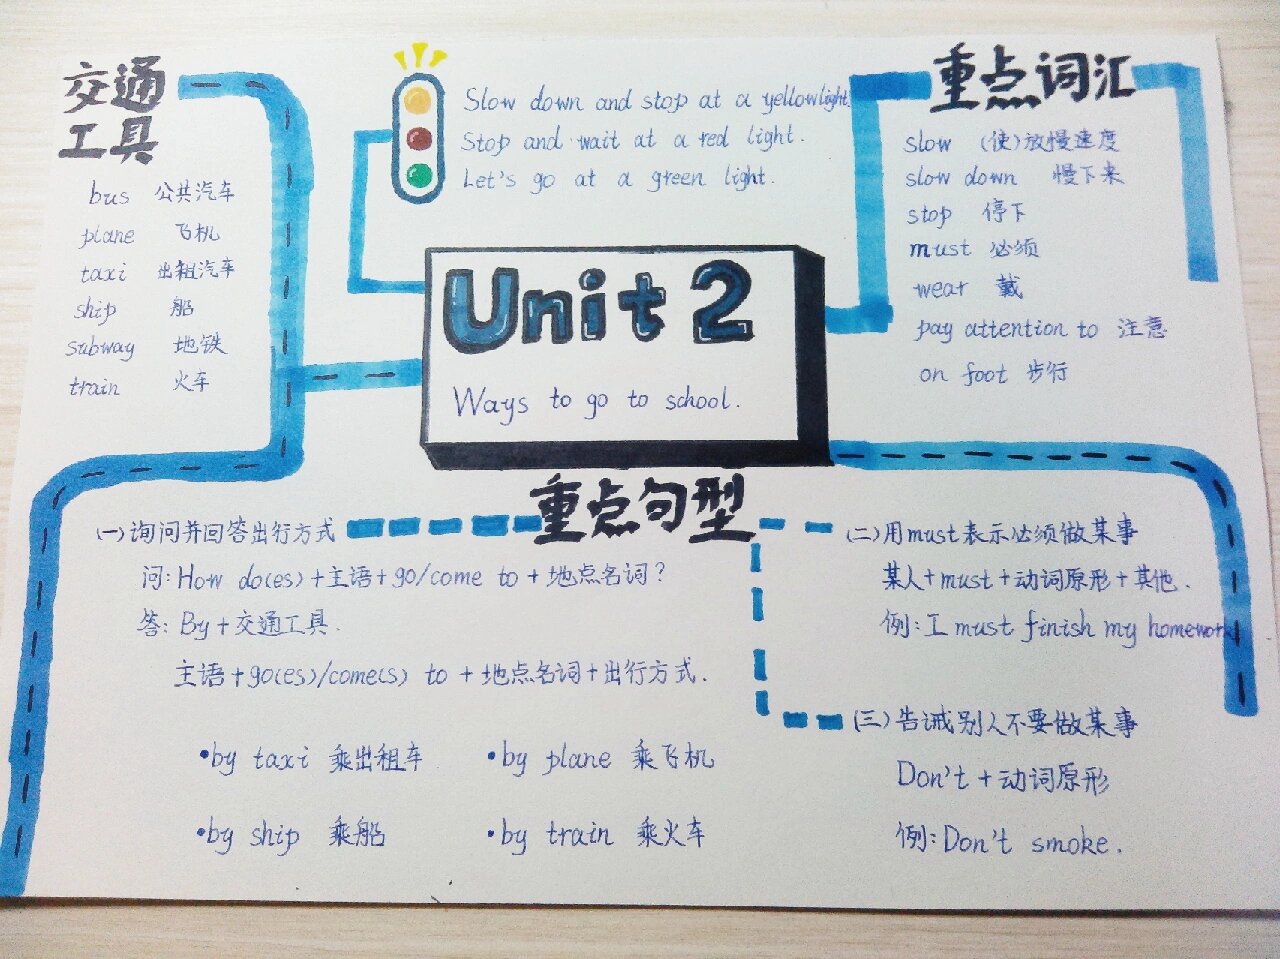 交通
工具
bus 公共汽车
plane 飞机
taxi 出租汽车
ship 船
subway 地铁
train 火车
Slow down and stop at a yellow light.
Stop and wait at a red light.
Let's go at a green light.
Unit 2
Ways to go to school.
重点词汇
slow (使)放慢速度
slow down 慢下来
stop 停下
must 必须
wear 戴
pay attention to 注意
on foot 步行
重点句型
(一)询问并回答出行方式
问: How do(es)+主语+go/come to+地点名词?
答: By+交通工具.
主语+go(es)/come(s) to +地点名词+出行方式.
•by taxi 乘出租车
•by plane 乘飞机
•by ship 乘船
•by train 乘火车
(二)用must表示必须做某事
某人+must+动词原形+其他.
例: I must finish my homework
(三)告诫别人不要做某事
Don't+动词原形
例: Don't smoke.